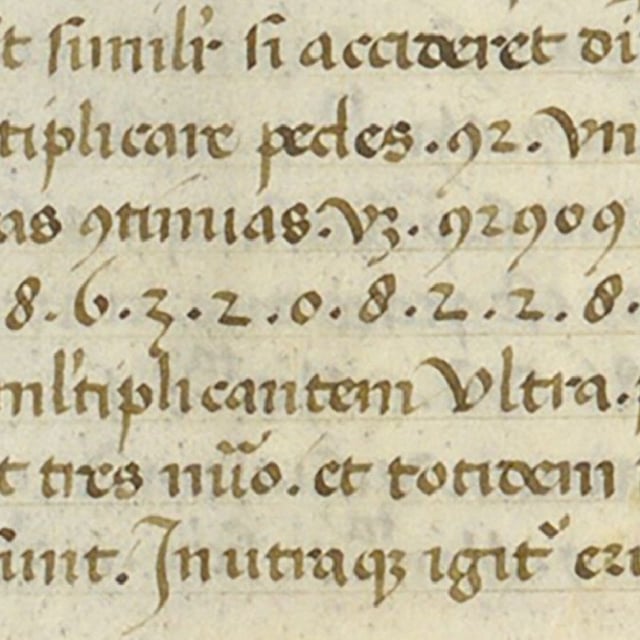 t similr si accideret di
tiplicare pedes . 92 . Vn
as 9tinuas. Vꝫ . 92909
8 . 6 . 3 . 2 . 0 . 8 . 2 . 2 . 8 .
ml'tiplicantem Vltra .
t tres nũo . et totidem
sunt . In utraqꝫ igit